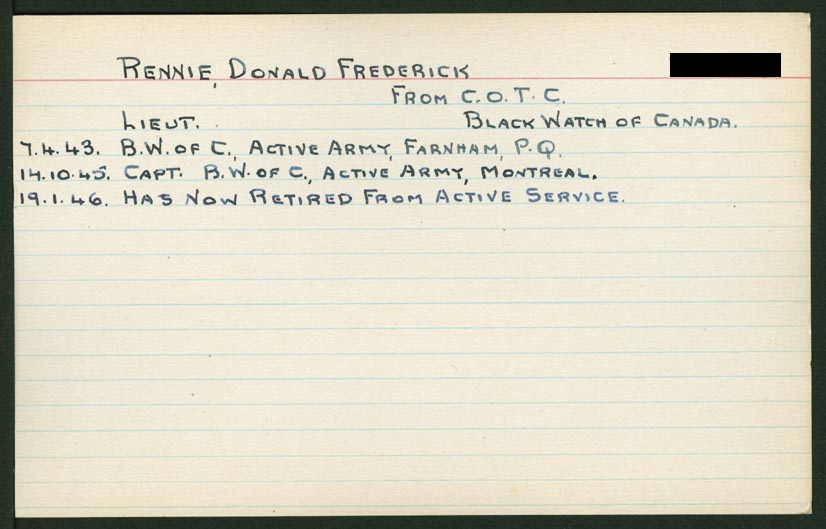 RENNIE, DONALD FREDERICK
FROM C.O.T.C.
LIEUT. BLACK WATCH OF CANADA.
7.4.43. B.W. OF C., ACTIVE ARMY, FARNHAM, P.Q.
14.10.45. CAPT. B.W. OF C., ACTIVE ARMY, MONTREAL.
19.1.46. HAS NOW RETIRED FROM ACTIVE SERVICE.